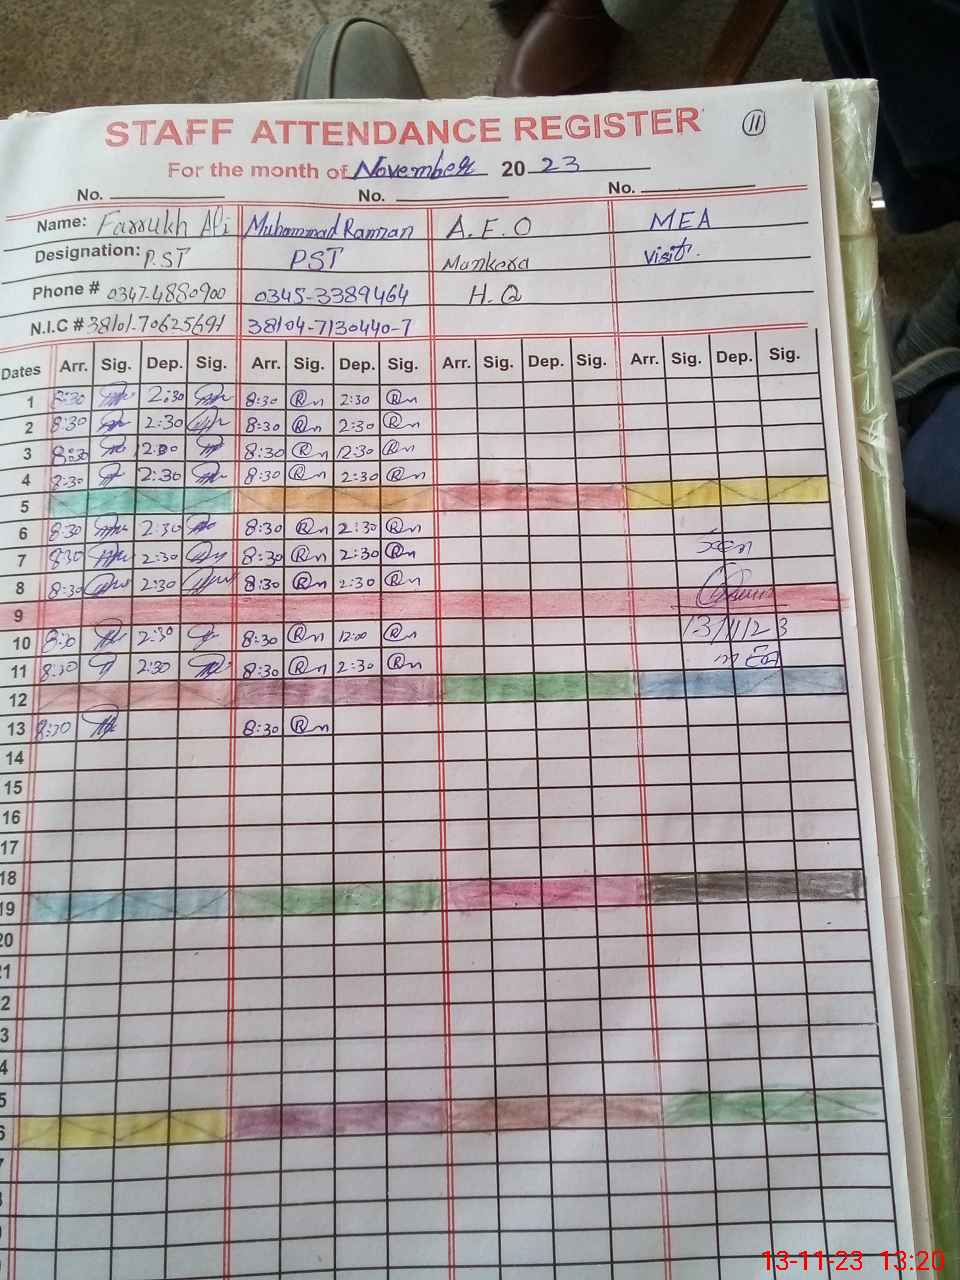 STAFF ATTENDANCE REGISTER 11
For the month of November 20 23
No. No. No.
Name: Farrukh Ali Muhammad Ramzan A.E.O MEA
Designation: P.ST PST Mankera visit.
Phone # 0347-4880900 0345-3389464 H.Q
N.I.C # 38101-70625691 38104-7130440-7
Dates Arr. Sig. Dep. Sig. Arr. Sig. Dep. Sig. Arr. Sig. Dep. Sig. Arr. Sig. Dep. Sig.
1 8:30 2:30 8:30 2:30
2 8:30 2:30 8:30 2:30
3 8:30 12:00 8:30 12:30
4 8:30 2:30 8:30 2:30
5
6 8:30 2:30 8:30 2:30
7 8:30 2:30 8:30 2:30 seen
8 8:30 2:30 8:30 2:30
9
10 8:30 2:30 8:30 12:00 13/11/23
11 8:30 2:30 8:30 2:30
12
13 8:30 8:30
14
15
16
17
18
19
20
21
2
3
4
5
6
7
8
13-11-23 13:20